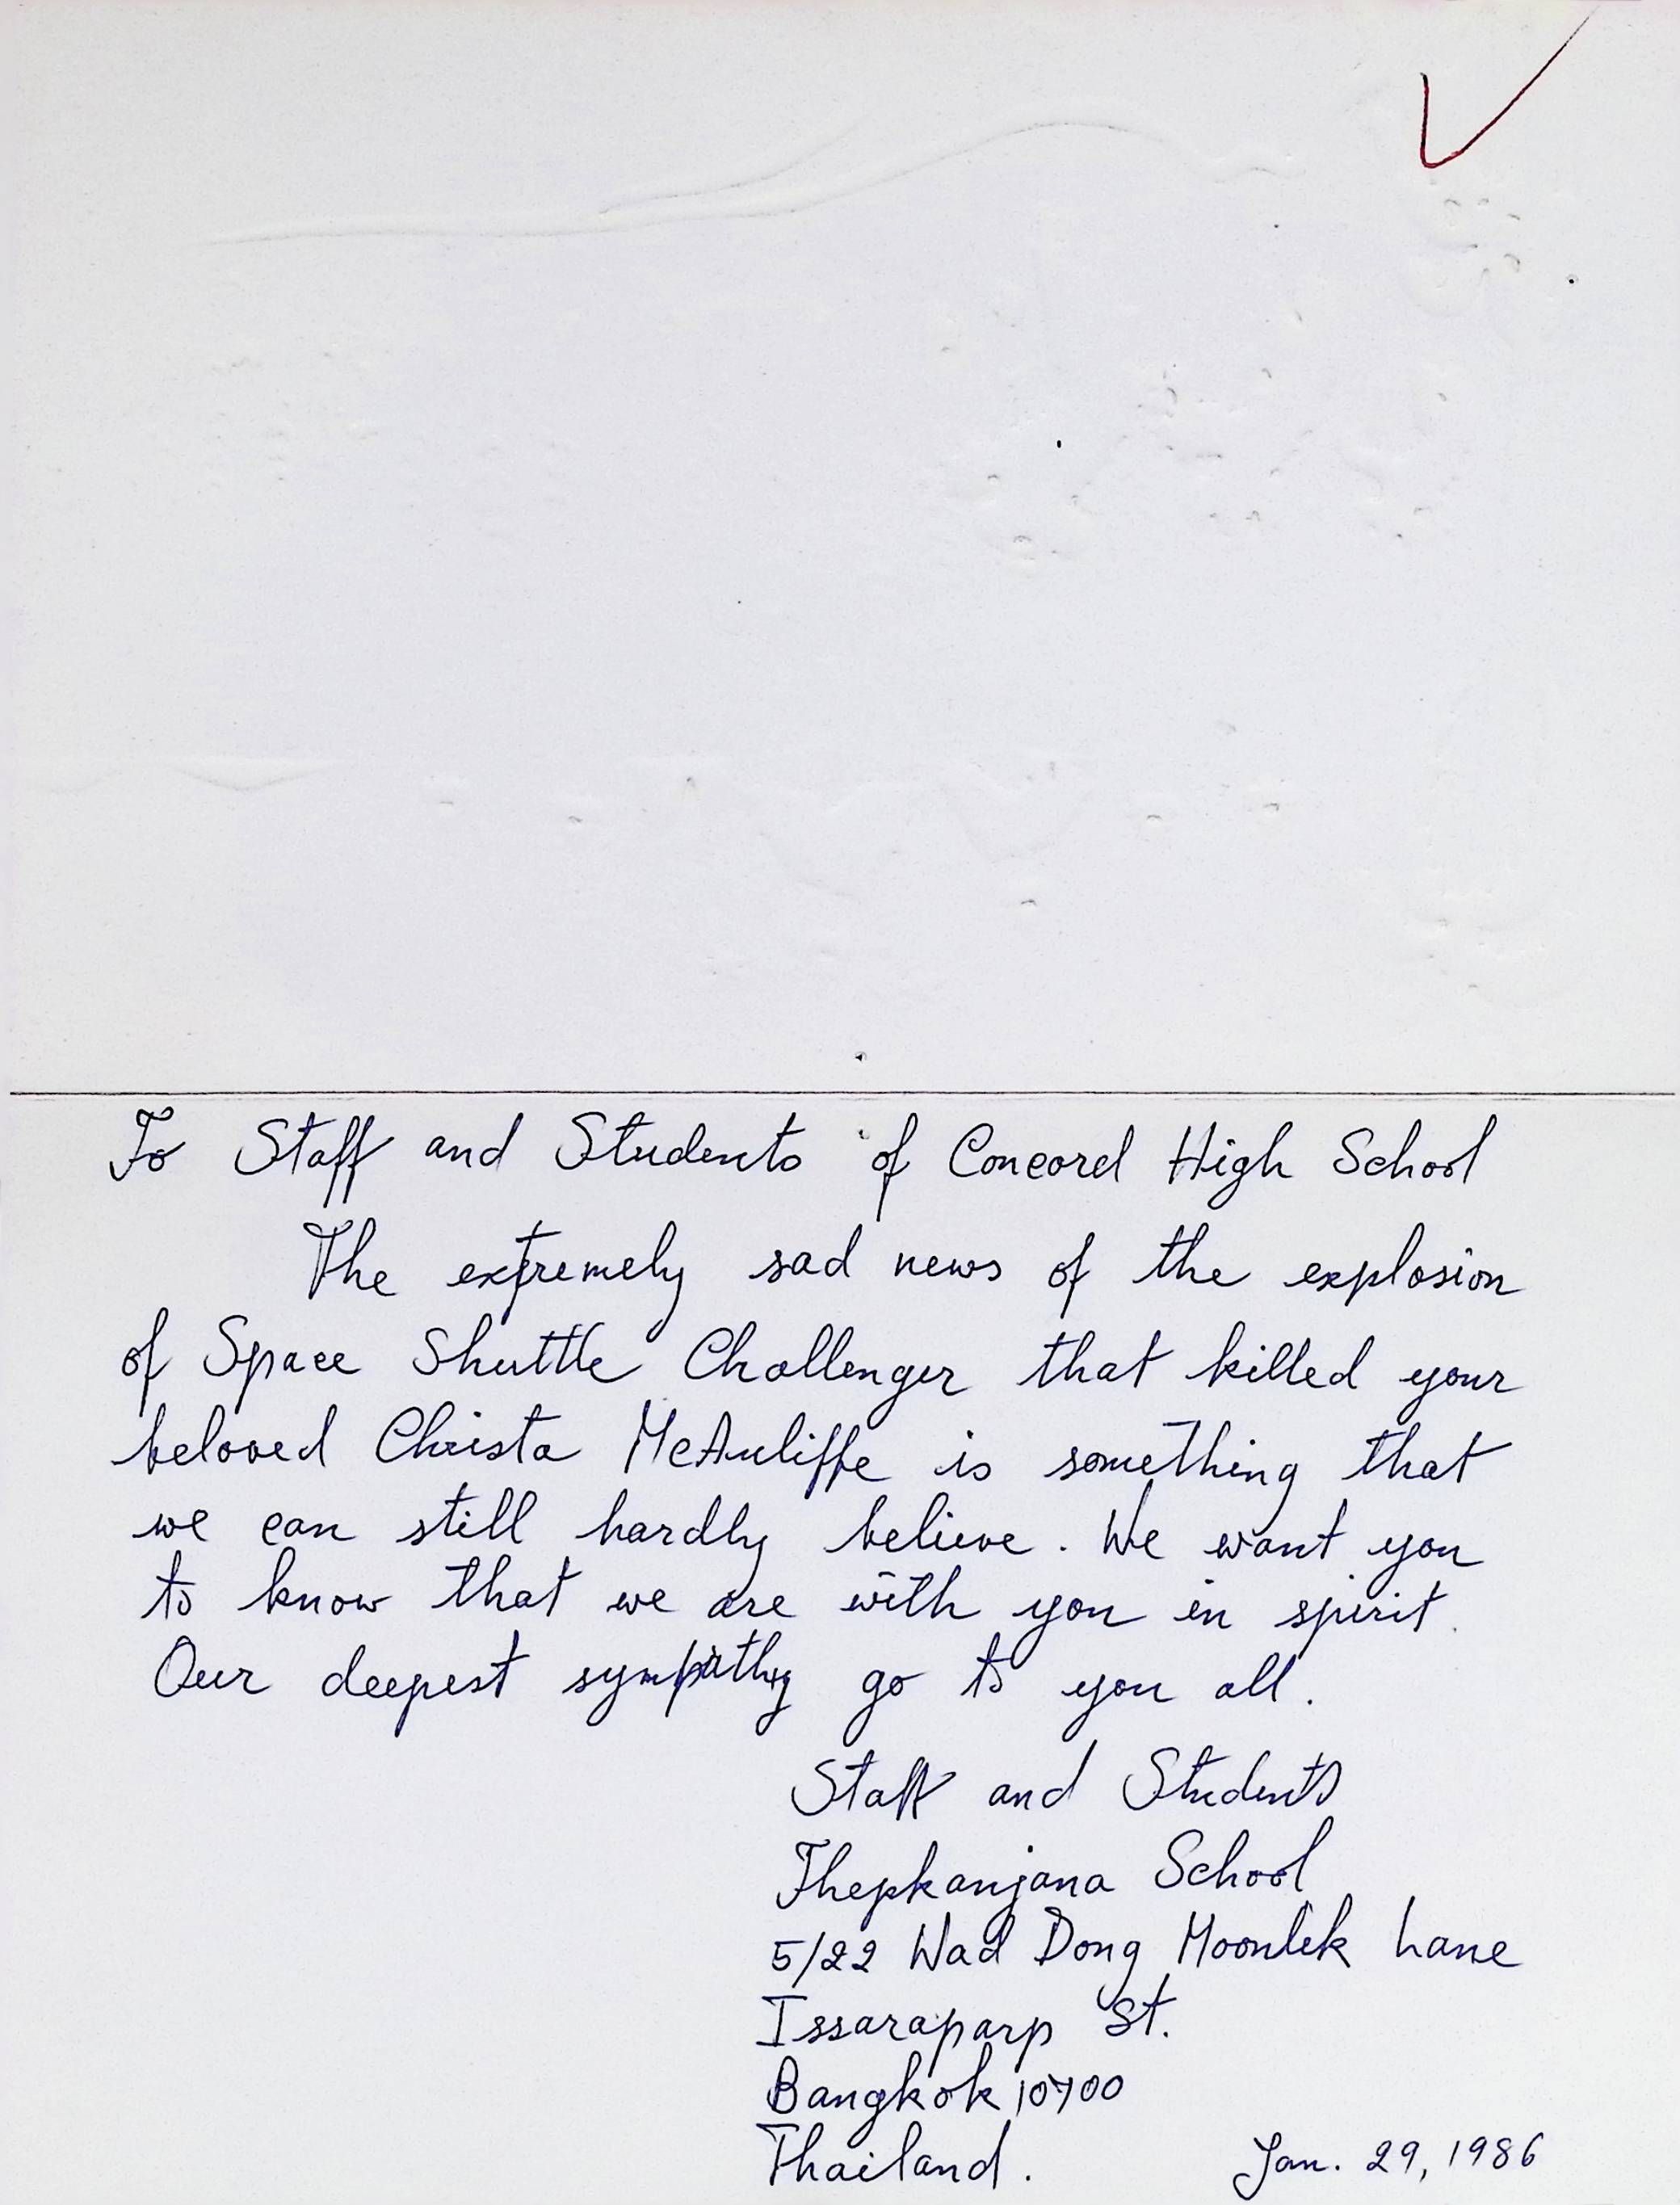 To Staff and Students of Concord High School
The extremely sad news of the explosion
of Space Shuttle Challenger that killed your
beloved Christa McAuliffe is something that
we can still hardly believe. We want you
to know that we are with you in spirit.
Our deepest sympathy go to you all.
Staff and Students
Thepkanjana School
5/22 Wad Dong Moonlek Lane
Issaraparp St.
Bangkok 10700
Thailand.
Jan. 29, 1986